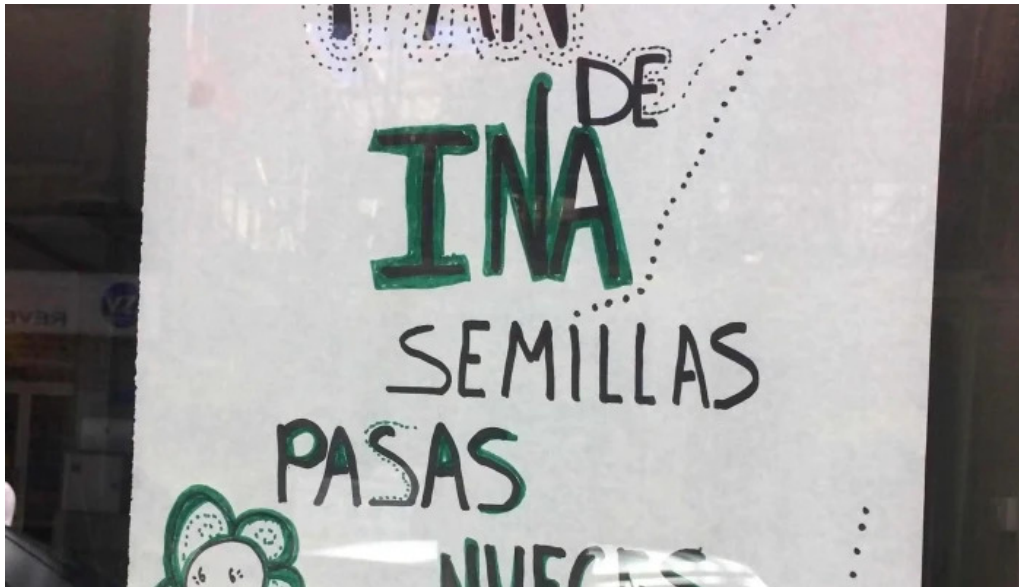 PAN
DE
INA
SEMILLAS
PASAS
NUECES